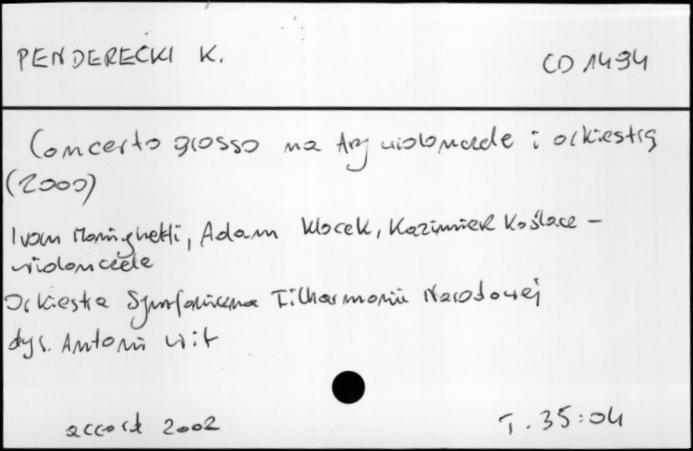 PENDERECKI K.
CD 1494
Concerto grosso na trzy wiolonczele i orkiestrę
(2000)
Ivan Monighetti, Adam Klocek, Kazimierz Koślacz -
wiolonczele
Orkiestra Symfoniczna Filharmonii Narodowej
dyr. Antoni Wit
accord 2002
T. 35:04